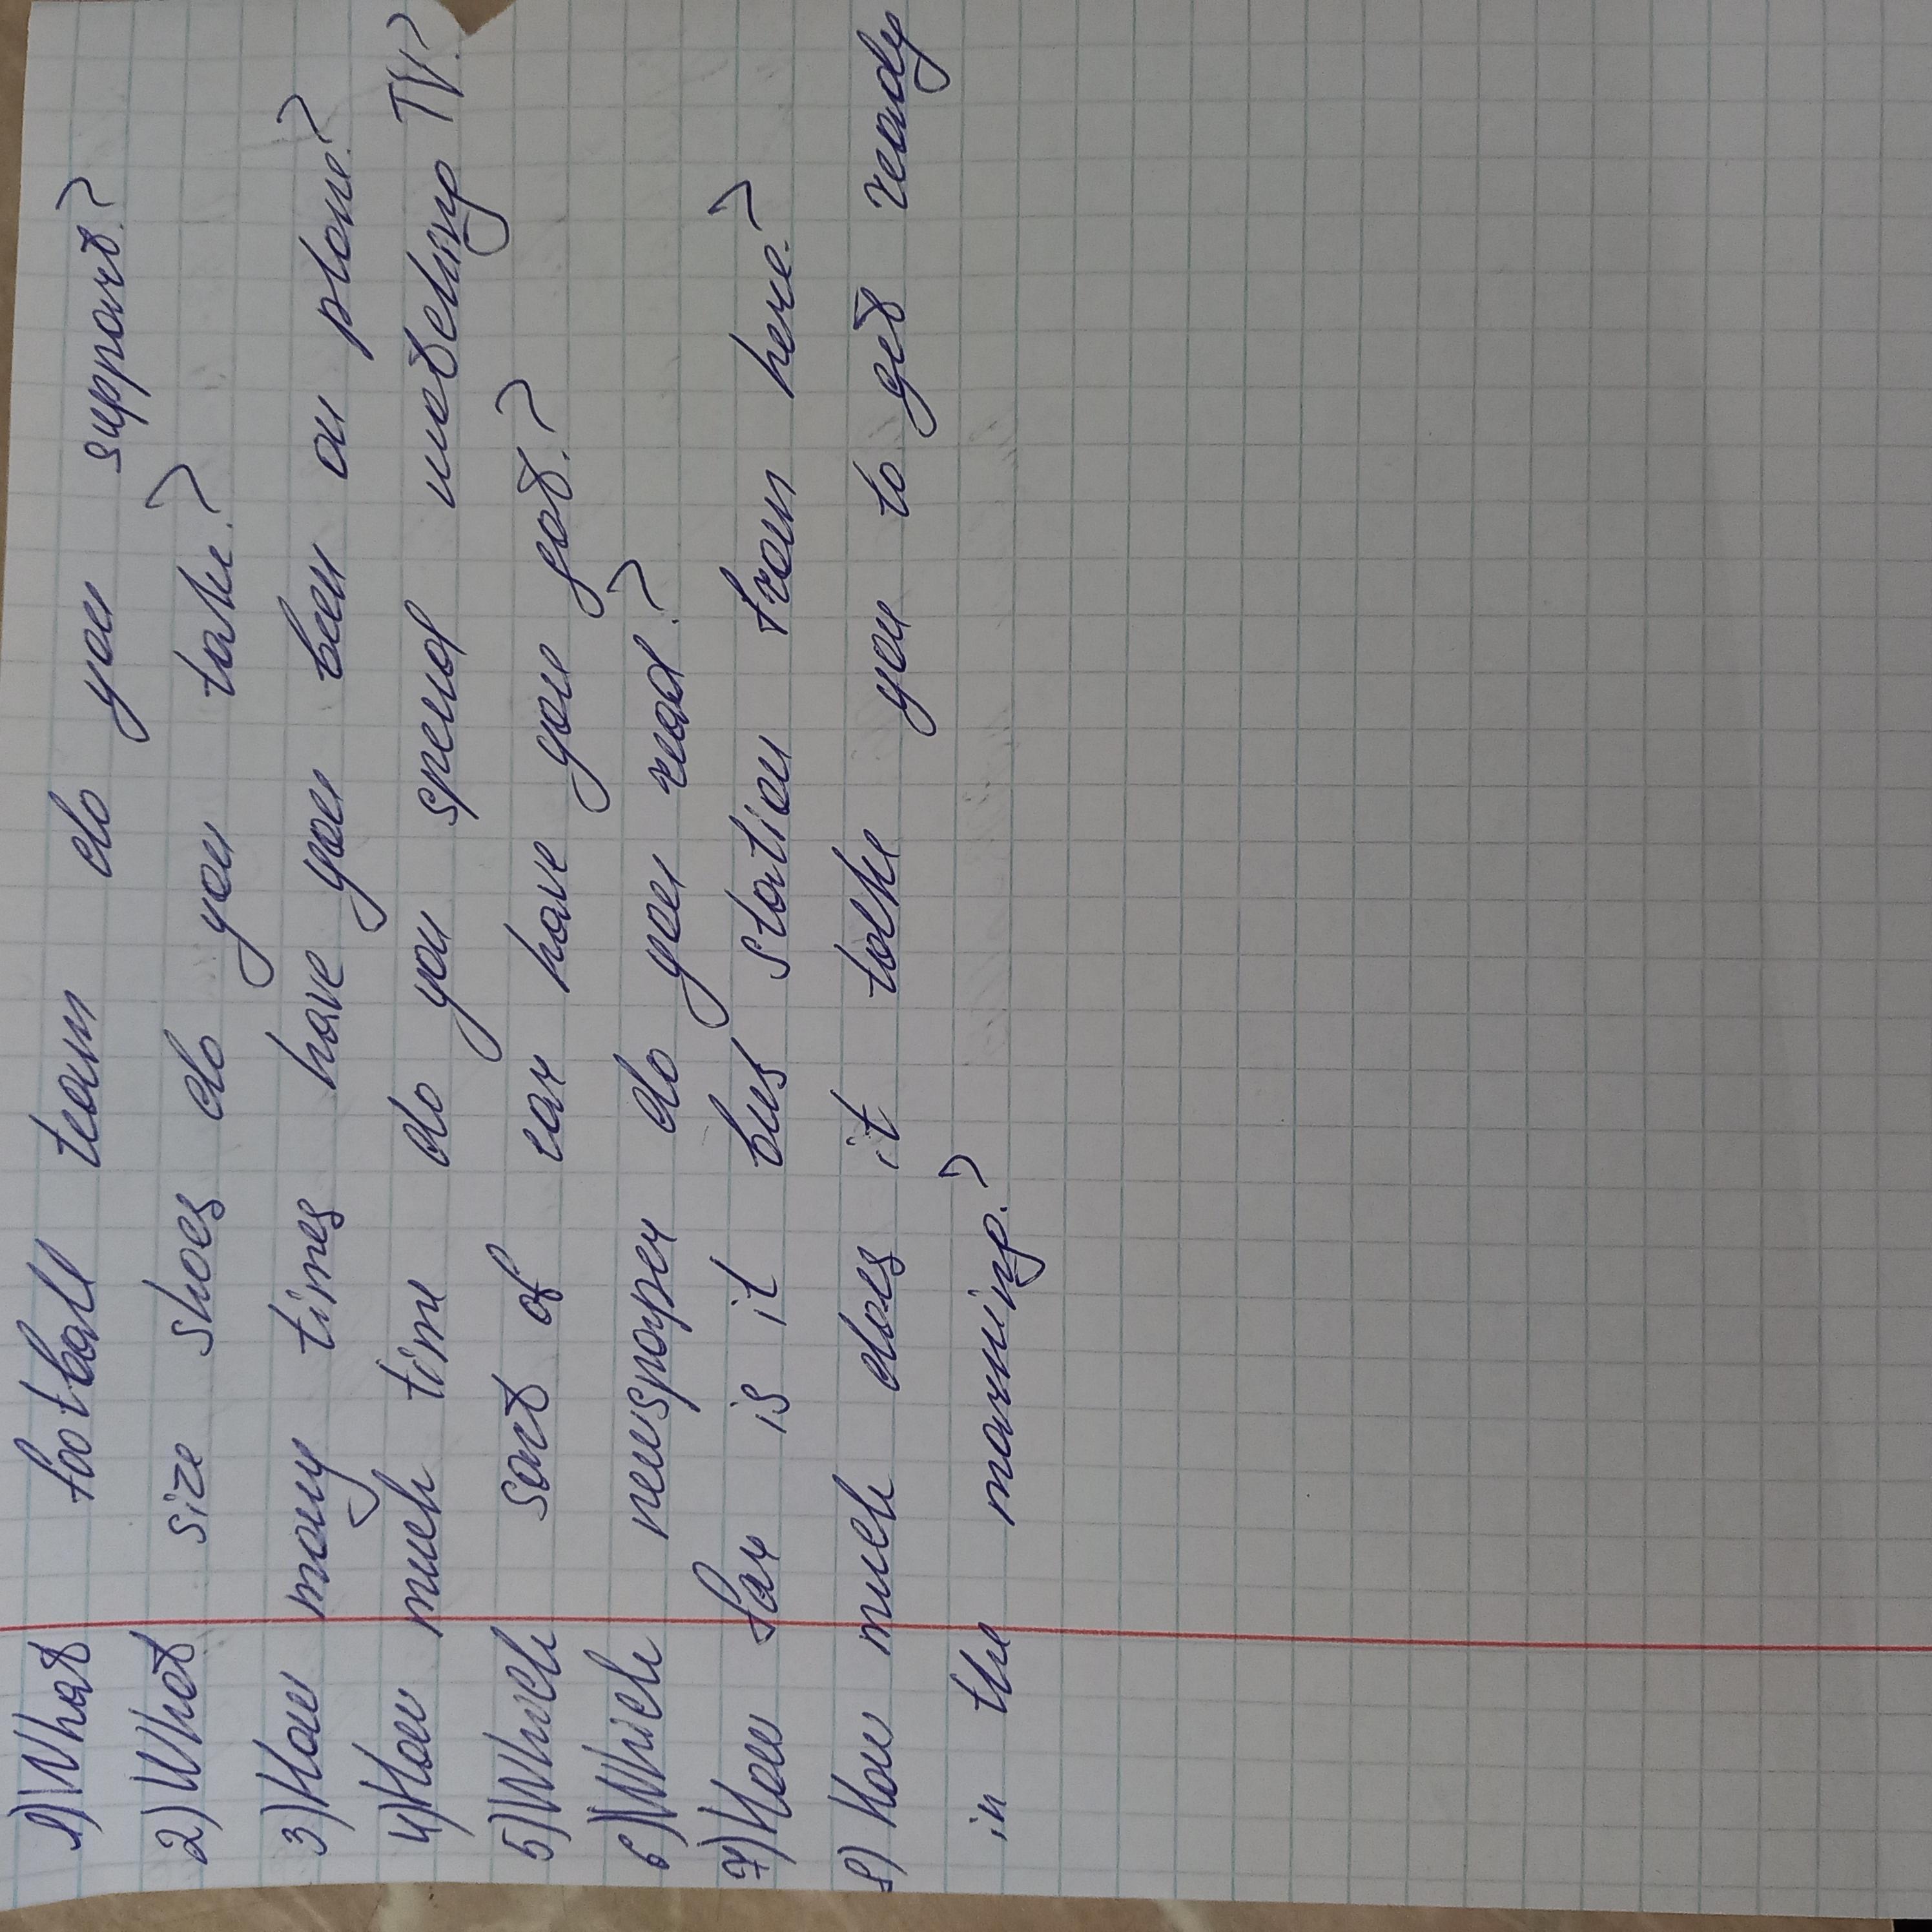 1) What football team do you support?
2) What size shoes do you take?
3) How many times have you been on plane?
4) How much time do you spend watching TV?
5) Which sort of car have you got?
6) Which newspaper do you read?
7) How far is it bus station from here?
8) How much does it take you to get ready
in the morning?